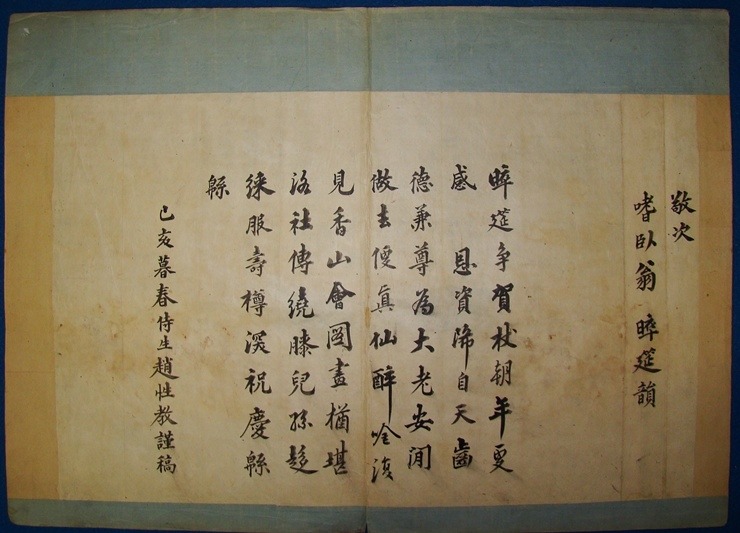 敬次
嗜臥翁 晬筵韻
晬筵爭賀杖朝年更
感 恩資降自天齒
德兼尊為大老安閒
做去便眞仙醉吟復
見香山會圖畫猶堪
洛社傳繞膝兒孫趍
綵服壽樽深祝慶緜
緜
己亥暮春侍生趙性教謹稿